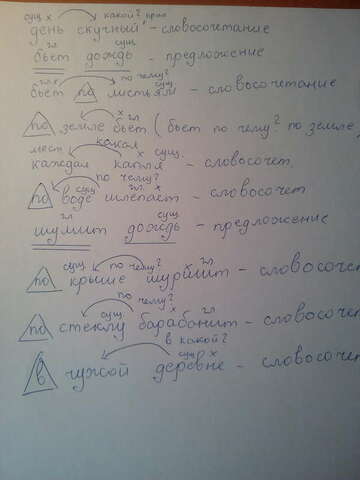 сущ х какой? прил
день скучный - словосочетание
гл сущ.
бьёт дождь - предложение
гл х по чему? сущ.
бьёт по листьям - словосочетание
х гл
по земле бьёт (бьёт по чему? по земле
мест какая х сущ.
каждая капля - словосочет
по чему?
сущ. гл. х
по воде шлёпает - словосочет
гл сущ.
шумит дождь - предложение
сущ по чему? х гл
по крыше шуршит - словосочет
по чему?
сущ. х гл
по стеклу барабанит - словосочет
в какой?
сущ х
в чужой деревне - словосочет